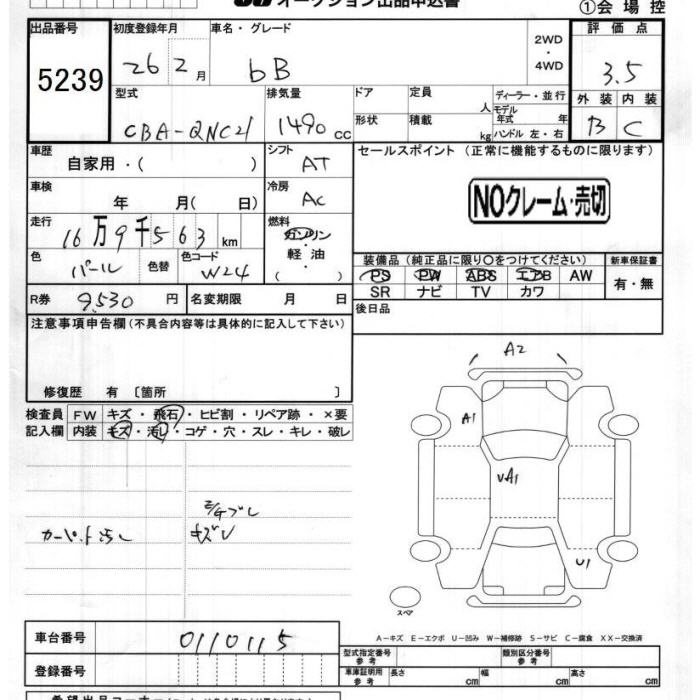 オークション出品申込書
①会場控
出品番号 初度登録年月 車名・グレード 評価点
5239 26 2月 bB 2WD・4WD 3.5
型式 排気量 ドア 定員 人 ディーラー・並行 外装 内装
CBA-QNC21 1490 cc 形状 積載 kg モデル年式 年 ハンドル 左・右 B C
車歴 自家用・( ) シフト AT セールスポイント (正常に機能するものに限ります)
車検 年 月( 日) 冷房 AC NOクレーム・売切
走行 16万9千563km 燃料 ガソリン・軽油( )
色 パール 色替 色コード W24 装備品(純正品に限り○をつけてください) 新車保証書
PS PW ABS エアB AW 有・無
R券 9,530円 名変期限 月 日 SR ナビ TV カワ
後日品
注意事項申告欄(不具合内容等は具体的に記入して下さい)
修復歴 有 〔箇所 〕
検査員 FW キズ・飛石・ヒビ割・リペア跡・×要
記入欄 内装 キズ・汚レ・コゲ・穴・スレ・キレ・破レ
A2
A1
UA1
U1
キズレ
カーペット汚レ
スペア
A-キズ E-エクボ U-凹み W-補修跡 S-サビ C-腐食 XX-交換済
車台番号 0110115
型式指定番号 参考 類別区分番号 参考
登録番号 車庫証明用 参考 長さ cm 幅 cm 高さ cm